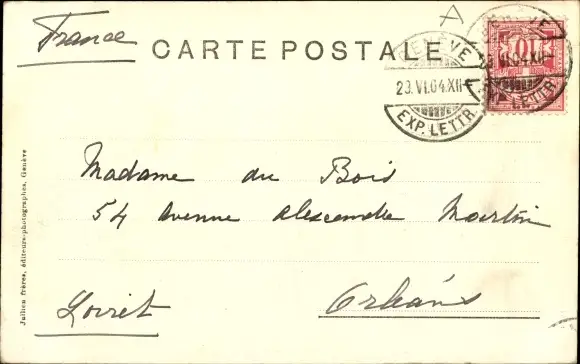 France
A
CARTE POSTALE
GENÈVE
23.VI.04.XII
EXP. LETTR.
10
Madame du Bois
54 Avenue Alexandre Martin
Orléans
Loiret
Jullien frères, éditeurs-photographes, Genève